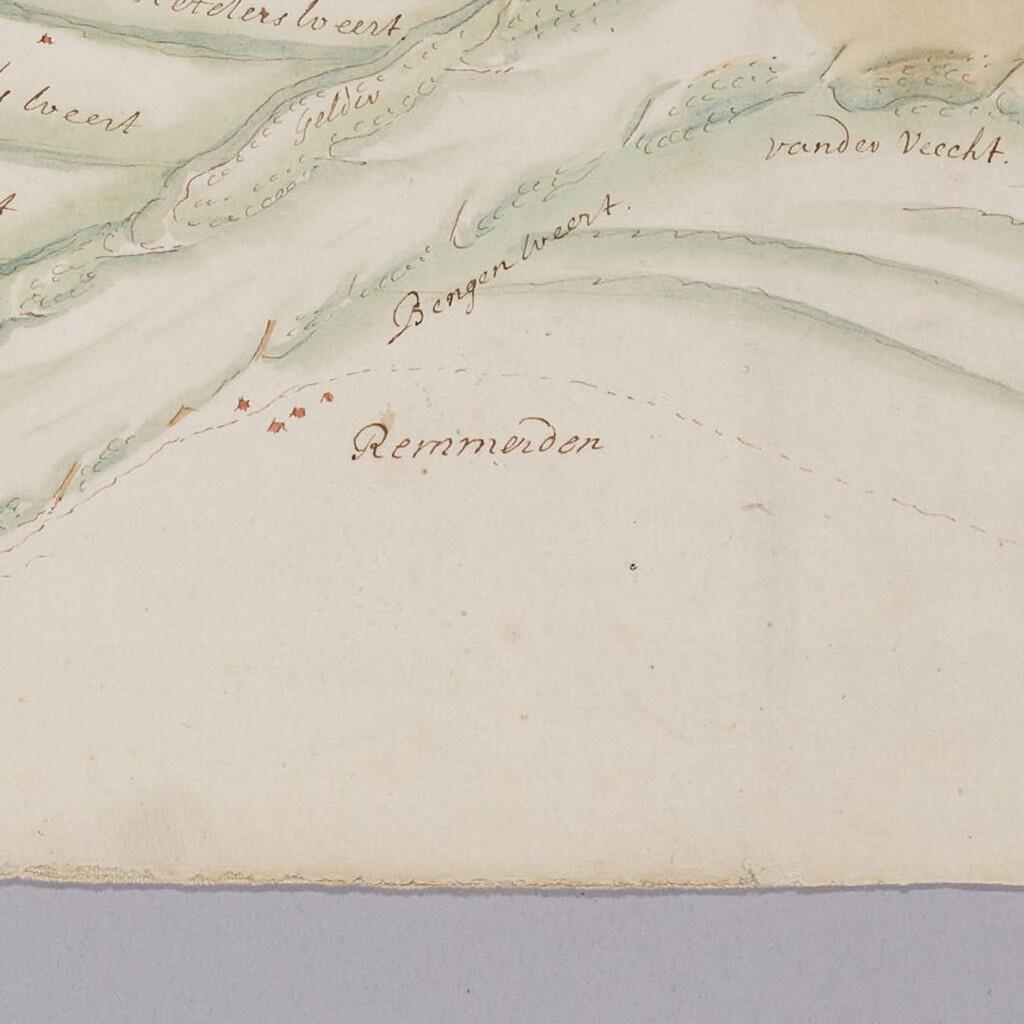 weert.
weert
Gelder
vander Veecht.
Bengen weert.
Remmerden